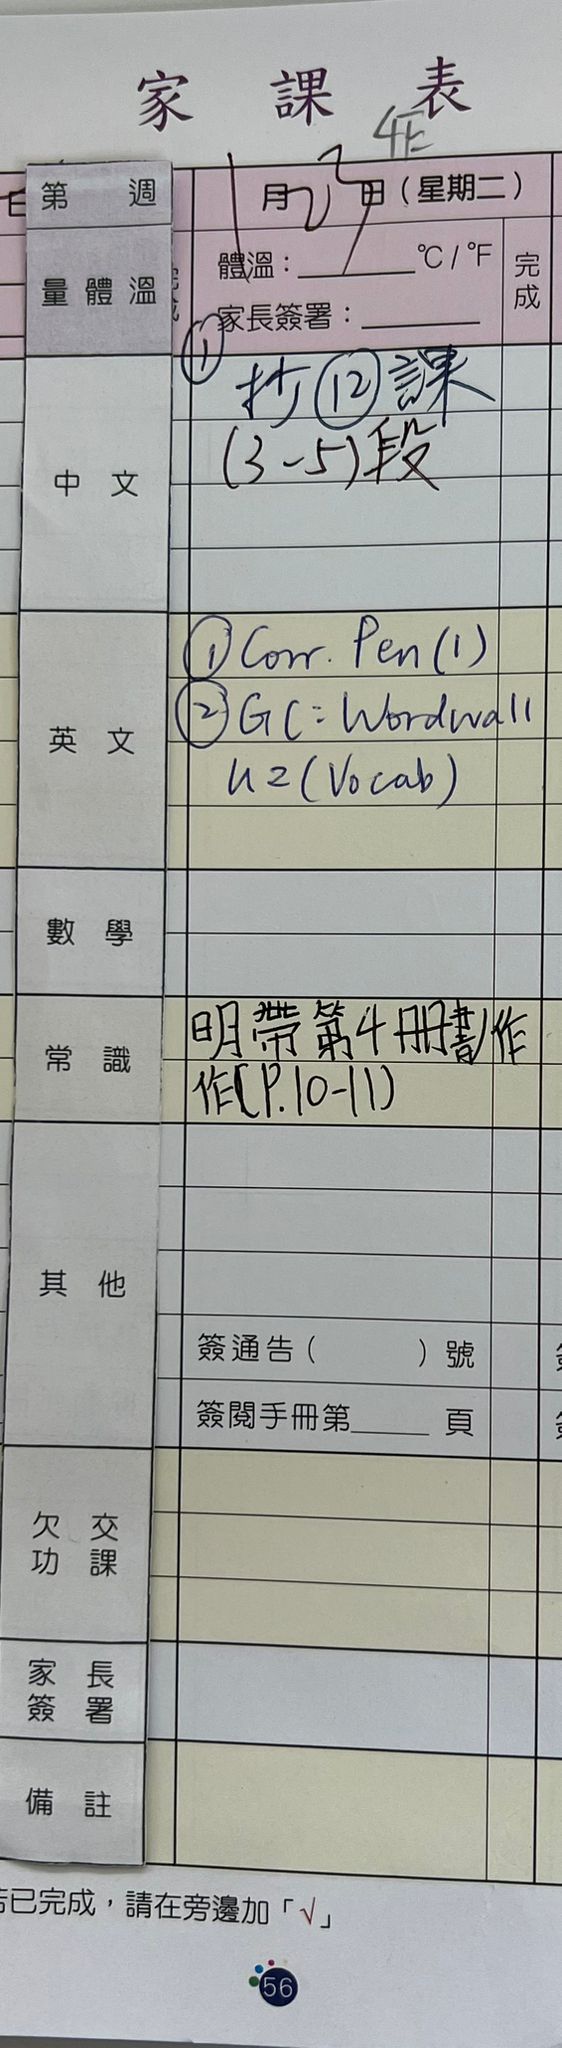 家課表
4E
第 週
1月23日(星期二)
量體溫
體溫：______°C/°F
家長簽署：______
完成
中文
① 抄⑫課
(3-5)段
英文
① Corr. Pen(1)
② GC: Wordwall
U2(Vocab)
數學
常識
明帶第4冊書作
作(P.10-11)
其他
簽通告( )號
簽閱手冊第____頁
欠交
功課
家長
簽署
備註
已完成，請在旁邊加「√」
56